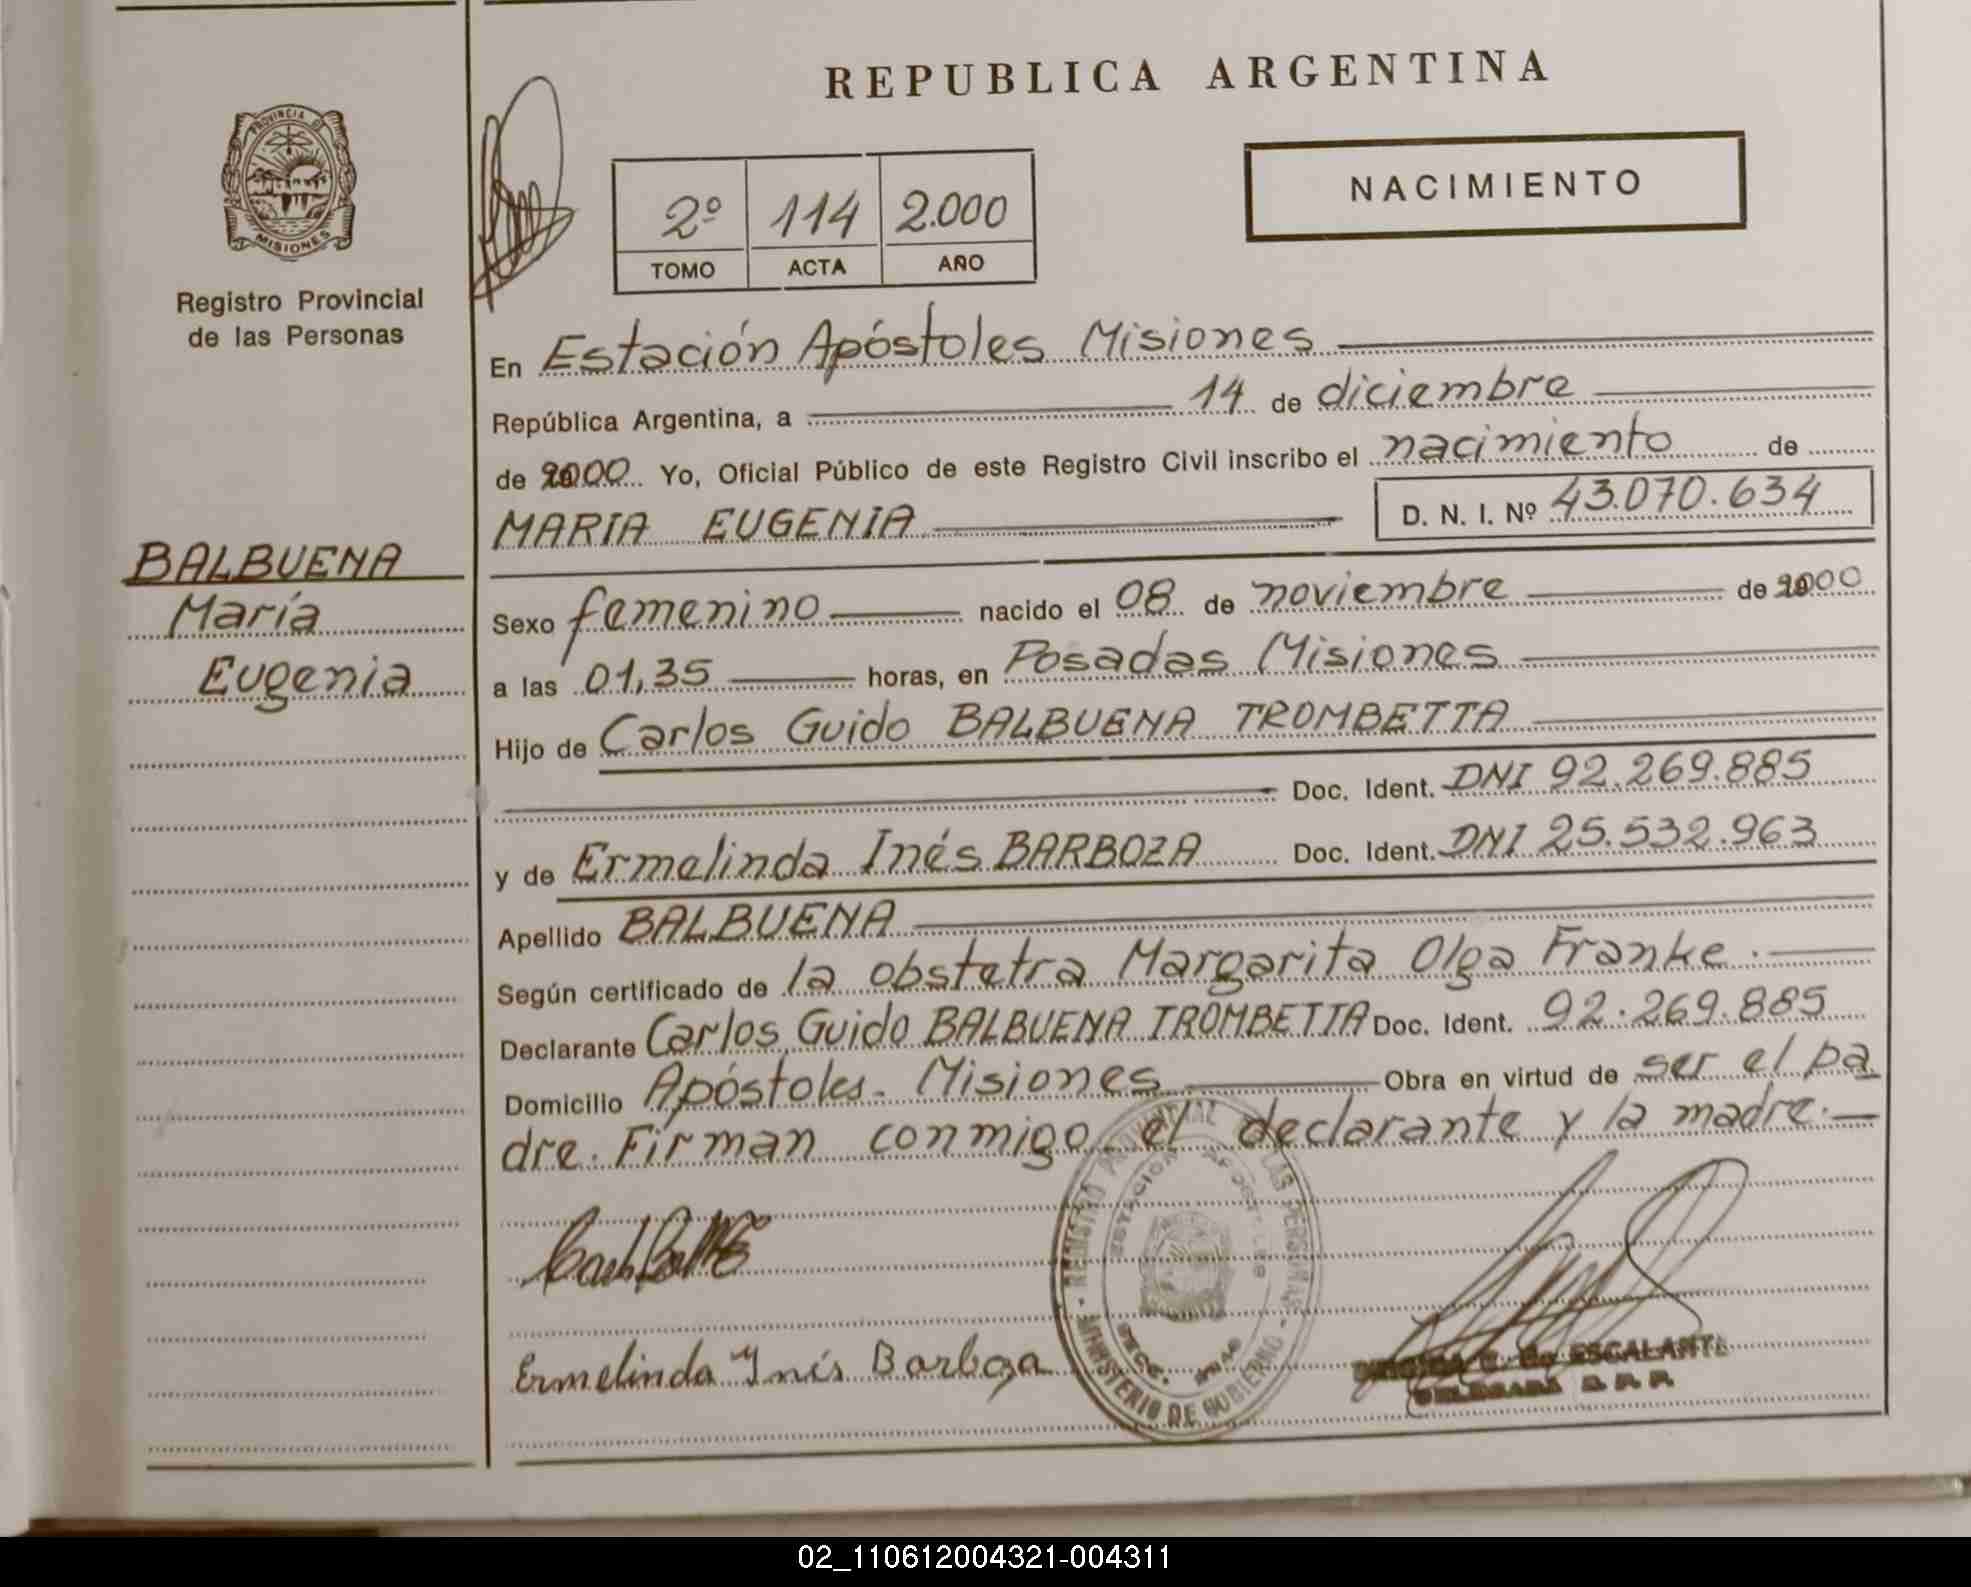 REPUBLICA ARGENTINA
PROVINCIA DE
MISIONES
Registro Provincial
de las Personas
2º 114 2.000
TOMO ACTA AÑO
NACIMIENTO
En Estación Apóstoles Misiones
República Argentina, a 14 de diciembre
de 2000 Yo, Oficial Público de este Registro Civil inscribo el nacimiento de
MARIA EUGENIA D. N. I. Nº 43.070.634
BALBUENA
María
Eugenia
Sexo femenino nacido el 08 de noviembre de 2000
a las 01,35 horas, en Posadas Misiones
Hijo de Carlos Guido BALBUENA TROMBETTA
Doc. Ident. DNI 92.269.885
y de Ermelinda Inés BARBOZA Doc. Ident. DNI 25.532.963
Apellido BALBUENA
Según certificado de la obstetra Margarita Olga Franke.
Declarante Carlos Guido BALBUENA TROMBETTA Doc. Ident. 92.269.885
Domicilio Apóstoles. Misiones Obra en virtud de ser el pa
dre. Firman conmigo el declarante y la madre.
REGISTRO PROVINCIAL DE LAS PERSONAS
ESTACION APOSTOLES
MINISTERIO DE GOBIERNO
Ermelinda Inés Barboza
ESCALANTE
DELEGADA R. P. P.
02_110612004321-004311